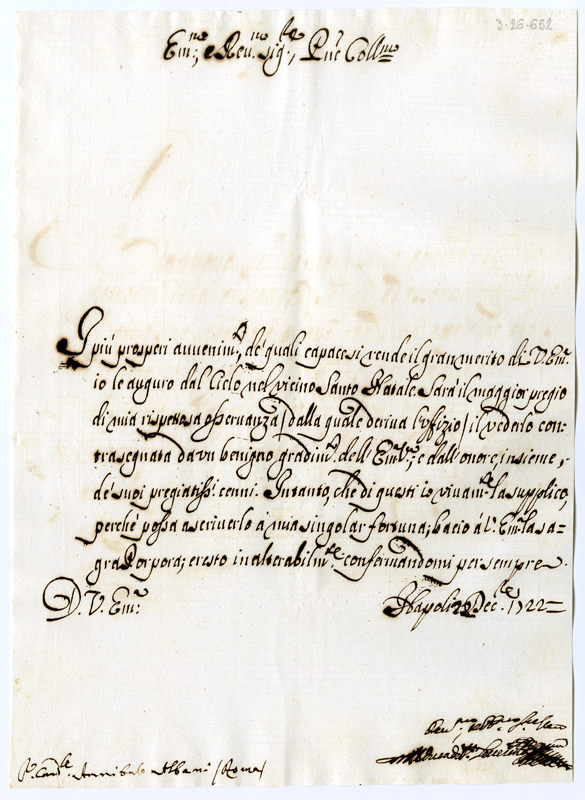 3-26-652
Em.mo, e Rev.mo Sig.re, P.ne Coll.mo
I più prosperi avvenim.ti, de' quali capace si rende il gran merito di V. Em.
io le auguro dal Cielo nel vicino Santo Natale. Sarà il maggior pregio
di mia rispettosa osservanza (dalla quale deriva l'uffizio) il vederlo con=
trasegnato da un benigno gradim.to dell' Em. V.; e dall' onore, insieme,
de' suoi pregiatiss.i cenni. Intanto, che di questi io vivam.te la supplico,
perche possa ascriverlo à mia singolar fortuna; bacio à V. Em. la sa=
gra Porpora; e resto inalterabilm.te confermandomi per sempre.
D. V. Em.
Napoli 22 Dec.re 1722=
S.r Card.le Annibale Albani (Roma)